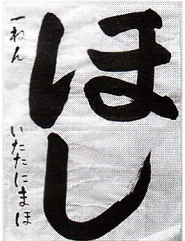 ほし
一ねん
いたたにまほ